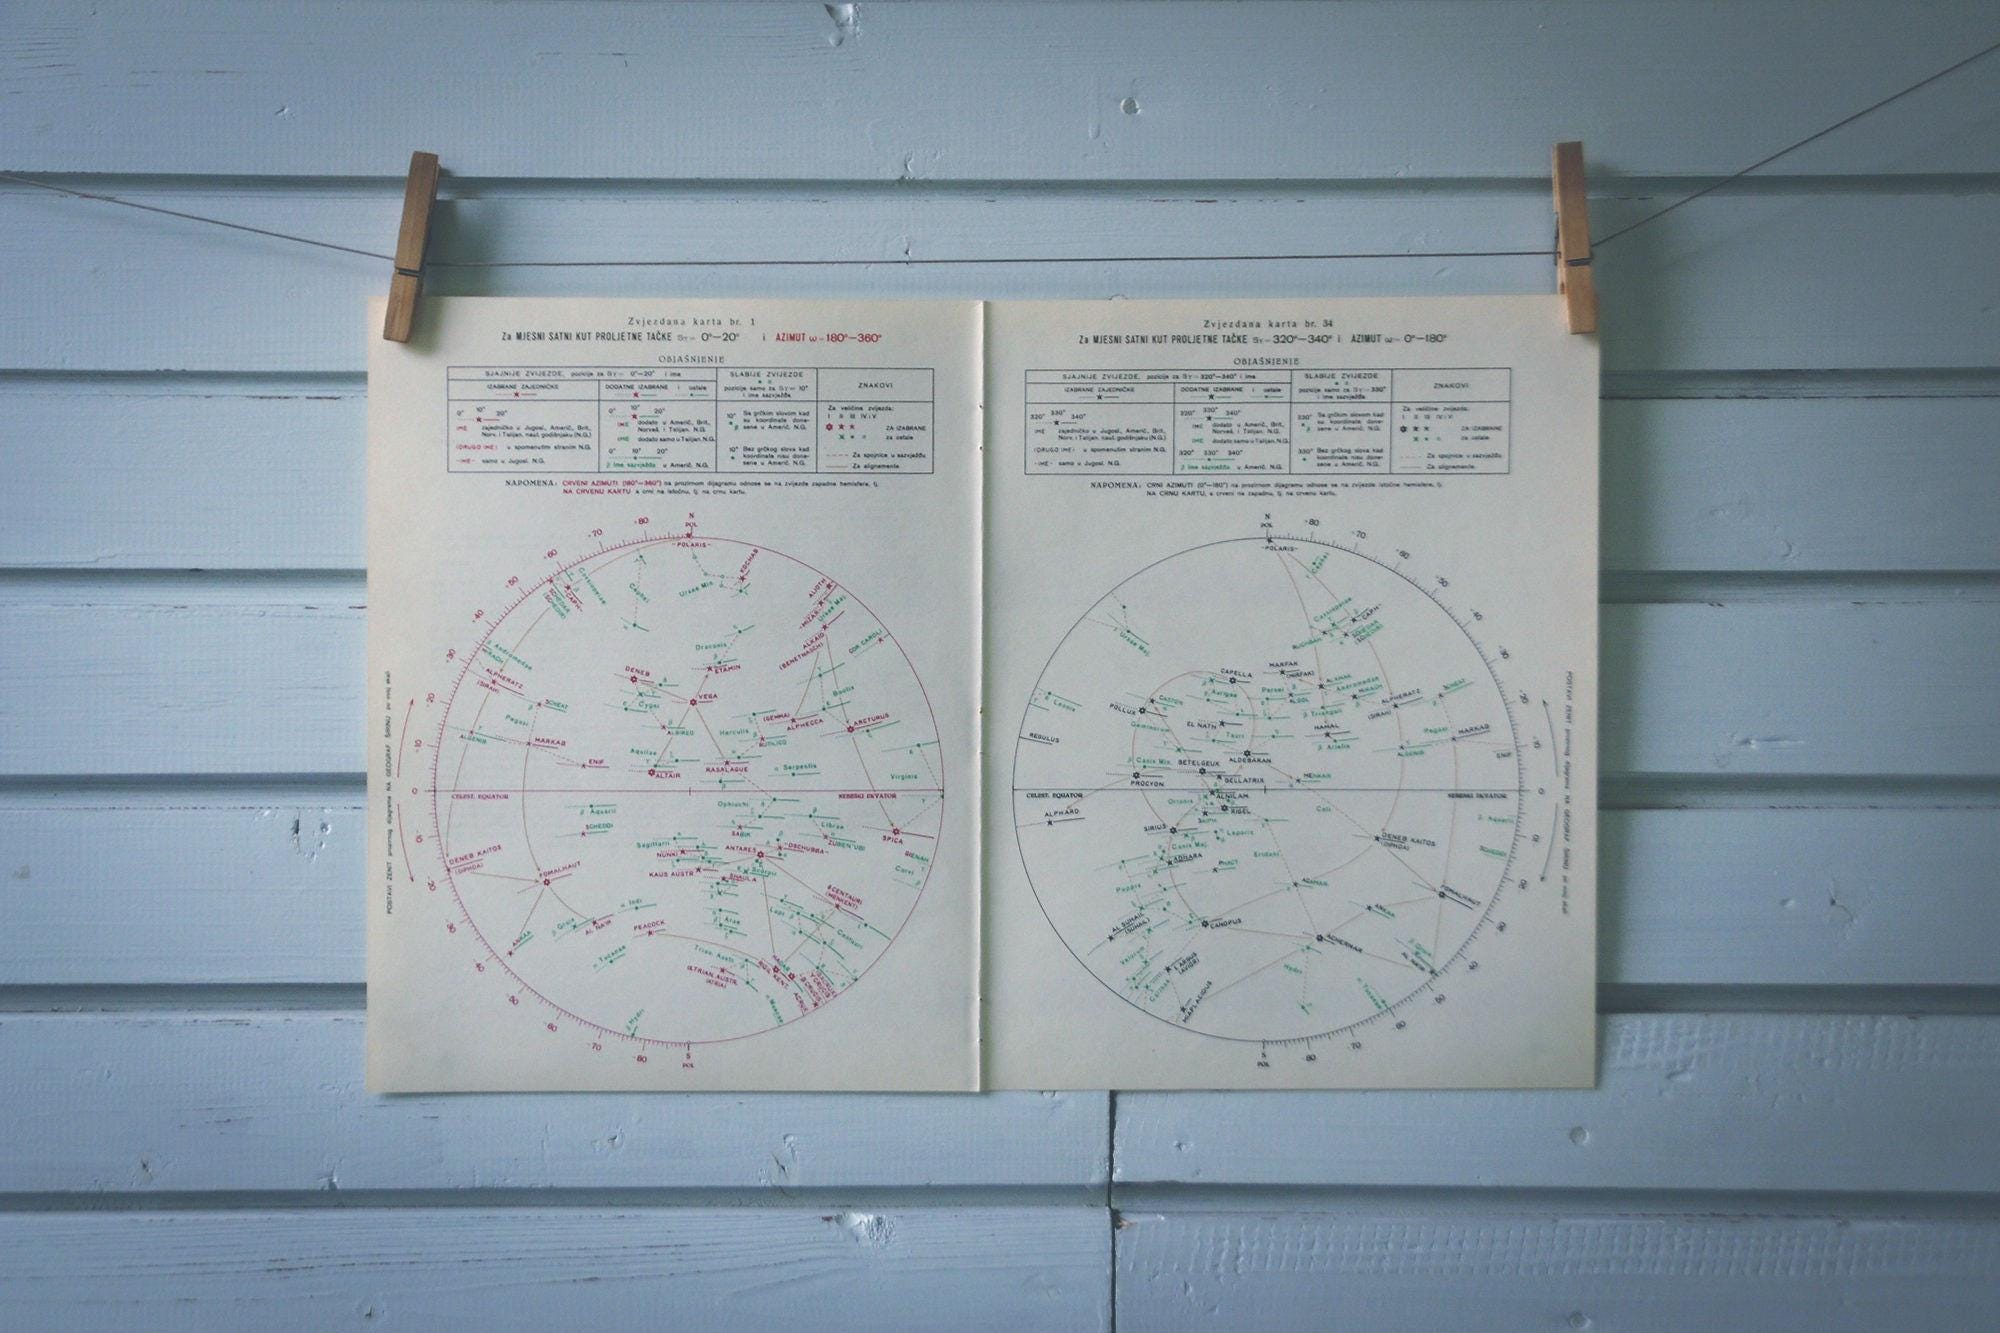 Zvjezdana karta br. 1
Za MJESNI SATNI KUT PROLJETNE TAČKE Sγ= 0°—20° i AZIMUT ω=180°—360°
OBJAŠNJENJE
SJAJNIJE ZVIJEZDE, pozicije za Sγ= 0°—20° i ime
IZABRANE ZAJEDNIČKE
DODATNE IZABRANE i ostale
SLABIJE ZVIJEZDE
pozicije samo za Sγ= 10°
i ime sazvježđa
ZNAKOVI
0° 10° 20°
IME zajedničko u Jugosl., Americ., Brit.,
Norv. i Talijan. naut. godišnjaku (N.G.)
(DRUGO IME) u spomenutim stranim N.G.
-IME- samo u Jugosl. N.G.
0° 10° 20°
IME dodato u Americ., Brit.,
Norveš. i Talijan. N.G.
IME dodato samo u Talijan. N.G.
0° 10° 20°
β Ime sazvježđa u Americ. N.G.
10° Sa grčkim slovom kad
su koordinate done-
sene u Americ. N.G.
10° Bez grčkog slova kad
koordinate nisu done-
sene u Americ. N.G.
Za veličine zvijezda:
I II III IV i V
ZA IZABRANE
za ostale
Za spojnice u sazvježđu
Za alignemente
NAPOMENA: CRVENI AZIMUTI (180°—360°) na prozirnom dijagramu odnose se na zvijezde zapadne hemisfere, tj.
NA CRVENU KARTU a crni na istočnu, tj. na crnu kartu.
N
POL
-POLARIS-
KOCHAB
Ursae Min.
Cephei
Cassiopeiae
CAPH
SCHEDAR
ALIOTH
-MIZAR-
Ursae Maj.
ALKAID
(BENETNASCH)
COR CAROLI
Draconis
ETAMIN
Andromedae
MIRACH
ALPHERATZ
(SIRAH)
DENEB
VEGA
Cygni
ALBIREO
Bootis
ARCTURUS
(GEMMA)
ALPHECCA
Herculis
RUTILICO
SCHEAT
Pegasi
ALGENIB
MARKAB
ENIF
Aquilae
ALTAIR
RASALAGUE
Serpentis
Virginis
CELEST. EQUATOR
NEBESKI EKVATOR
Ophiuchi
Aquarii
SCHEDDI
SABIK
Librae
ZUBEN'UBI
SPICA
GIENAH
Corvi
Sagittarii
NUNKI
ANTARES
-DSCHUBBA-
Scorpii
KAUS AUSTR.
SHAULA
DENEB KAITOS
(DIPHDA)
FOMALHAUT
θ CENTAURI
(MENKENT)
Lupi
Centauri
Indi
Gruis
AL NA'IR
PEACOCK
Arae
ANKAA
Tucanae
Trian. Austr.
α TRIAN. AUSTR.
(ATRIA)
HADAR
RIGIL KENT.
ACRUX
Muscae
β Hydri
S
POL
POSTAVI ZENIT prozirnog dijagrama NA GEOGRAF. ŠIRINU po ovoj skali
Zvjezdana karta br. 34
Za MJESNI SATNI KUT PROLJETNE TAČKE Sγ=320°—340° i AZIMUT ω= 0°—180°
OBJAŠNJENJE
SJAJNIJE ZVIJEZDE, pozicije za Sγ=320°—340° i ime
IZABRANE ZAJEDNIČKE
DODATNE IZABRANE i ostale
SLABIJE ZVIJEZDE
pozicije samo za Sγ=330°
i ime sazvježđa
ZNAKOVI
320° 330° 340°
IME zajedničko u Jugosl., Americ., Brit.,
Norv. i Talijan. naut. godišnjaku (N.G.)
(DRUGO IME) u spomenutim stranim N.G.
-IME- samo u Jugosl. N.G.
320° 330° 340°
IME dodato u Americ., Brit.,
Norveš. i Talijan. N.G.
IME dodato samo u Talijan. N.G.
320° 330° 340°
β Ime sazvježđa u Americ. N.G.
330° Sa grčkim slovom kad
su koordinate done-
sene u Americ. N.G.
330° Bez grčkog slova kad
koordinate nisu done-
sene u Americ. N.G.
Za veličine zvijezda:
I II III IV i V
ZA IZABRANE
za ostale
Za spojnice u sazvježđu
Za alignemente
NAPOMENA: CRNI AZIMUTI (0°—180°) na prozirnom dijagramu odnose se na zvijezde istočne hemisfere, tj.
NA CRNU KARTU, a crveni na zapadnu, tj. na crvenu kartu.
N
POL
-POLARIS-
Cephei
Ursae Maj.
Cassiopeiae
CAPH
RUCHBAH
SCHEDAR
CAPELLA
MARFAK
(MIRFAK)
Aurigae
Persei
ALGOL
ALAMAK
Andromedae
MIRACH
ALPHERATZ
(SIRAH)
SCHEAT
CASTOR
POLLUX
Leonis
Geminorum
EL NATH
Trianguli
HAMAL
Arietis
Pegasi
MARKAB
ALGENIB
ENIF
REGULUS
Tauri
ALDEBARAN
Canis Min.
BETELGEUX
BELLATRIX
MENKAR
PROCYON
CELEST. EQUATOR
NEBESKI EKVATOR
ALPHARD
Orionis
ALNILAM
RIGEL
SAIPH
Ceti
Aquarii
SIRIUS
Leporis
Canis Maj.
ADHARA
PHACT
Eridani
DENEB KAITOS
(DIPHDA)
SCHEDDI
Puppis
ACAMAR
FOMALHAUT
ANKAA
CANOPUS
AL SUHAIL
(SUHAIL)
Velorum
ACHERNAR
Gruis
AL NA'IR
ε ARGUS
(AVIOR)
Carinae
Hydri
MIAPLACIDUS
Tucanae
S
POL